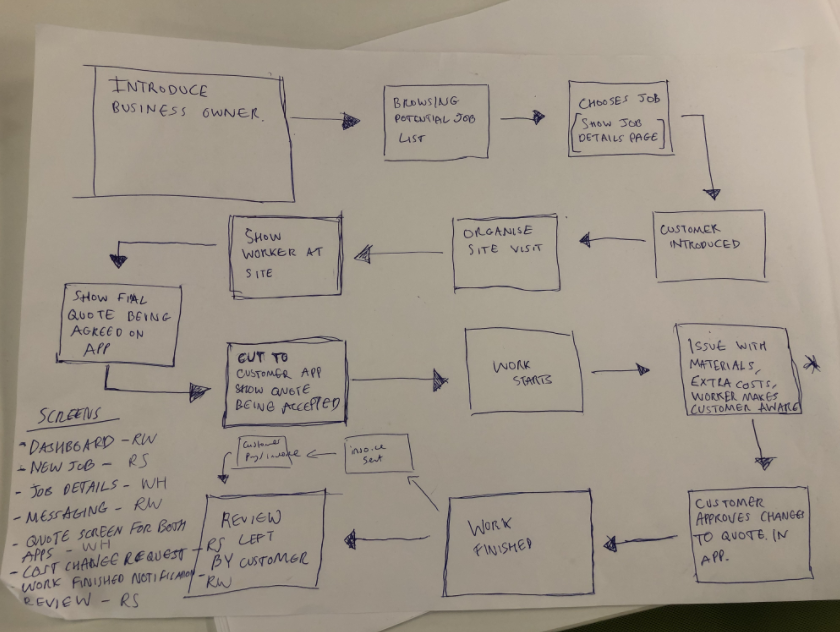 INTRODUCE
BUSINESS OWNER.
BROWSING
POTENTIAL JOB
LIST
CHOOSES JOB
[SHOW JOB
DETAILS PAGE]
CUSTOMER
INTRODUCED
ORGANISE
SITE VISIT
SHOW
WORKER AT
SITE
SHOW FIAL
QUOTE BEING
AGREED ON
APP
CUT TO
CUSTOMER APP
SHOW QUOTE
BEING ACCEPTED
WORK
STARTS
ISSUE WITH
MATERIALS,
EXTRA COSTS,
WORKER MAKES
CUSTOMER AWARE
*
CUSTOMER
APPROVES CHANGES
TO QUOTE IN
APP.
WORK
FINISHED
invoice
sent
Customer
REVIEW
LEFT
BY CUSTOMER
SCREENS
- DASHBOARD - RW
- NEW JOB - RS
- JOB DETAILS - WH
- MESSAGING - RW
- QUOTE SCREEN FOR BOTH
APPS - WH
- COST CHANGE REQUEST - RS
WORK FINISHED NOTIFICATION - RW
REVIEW - RS